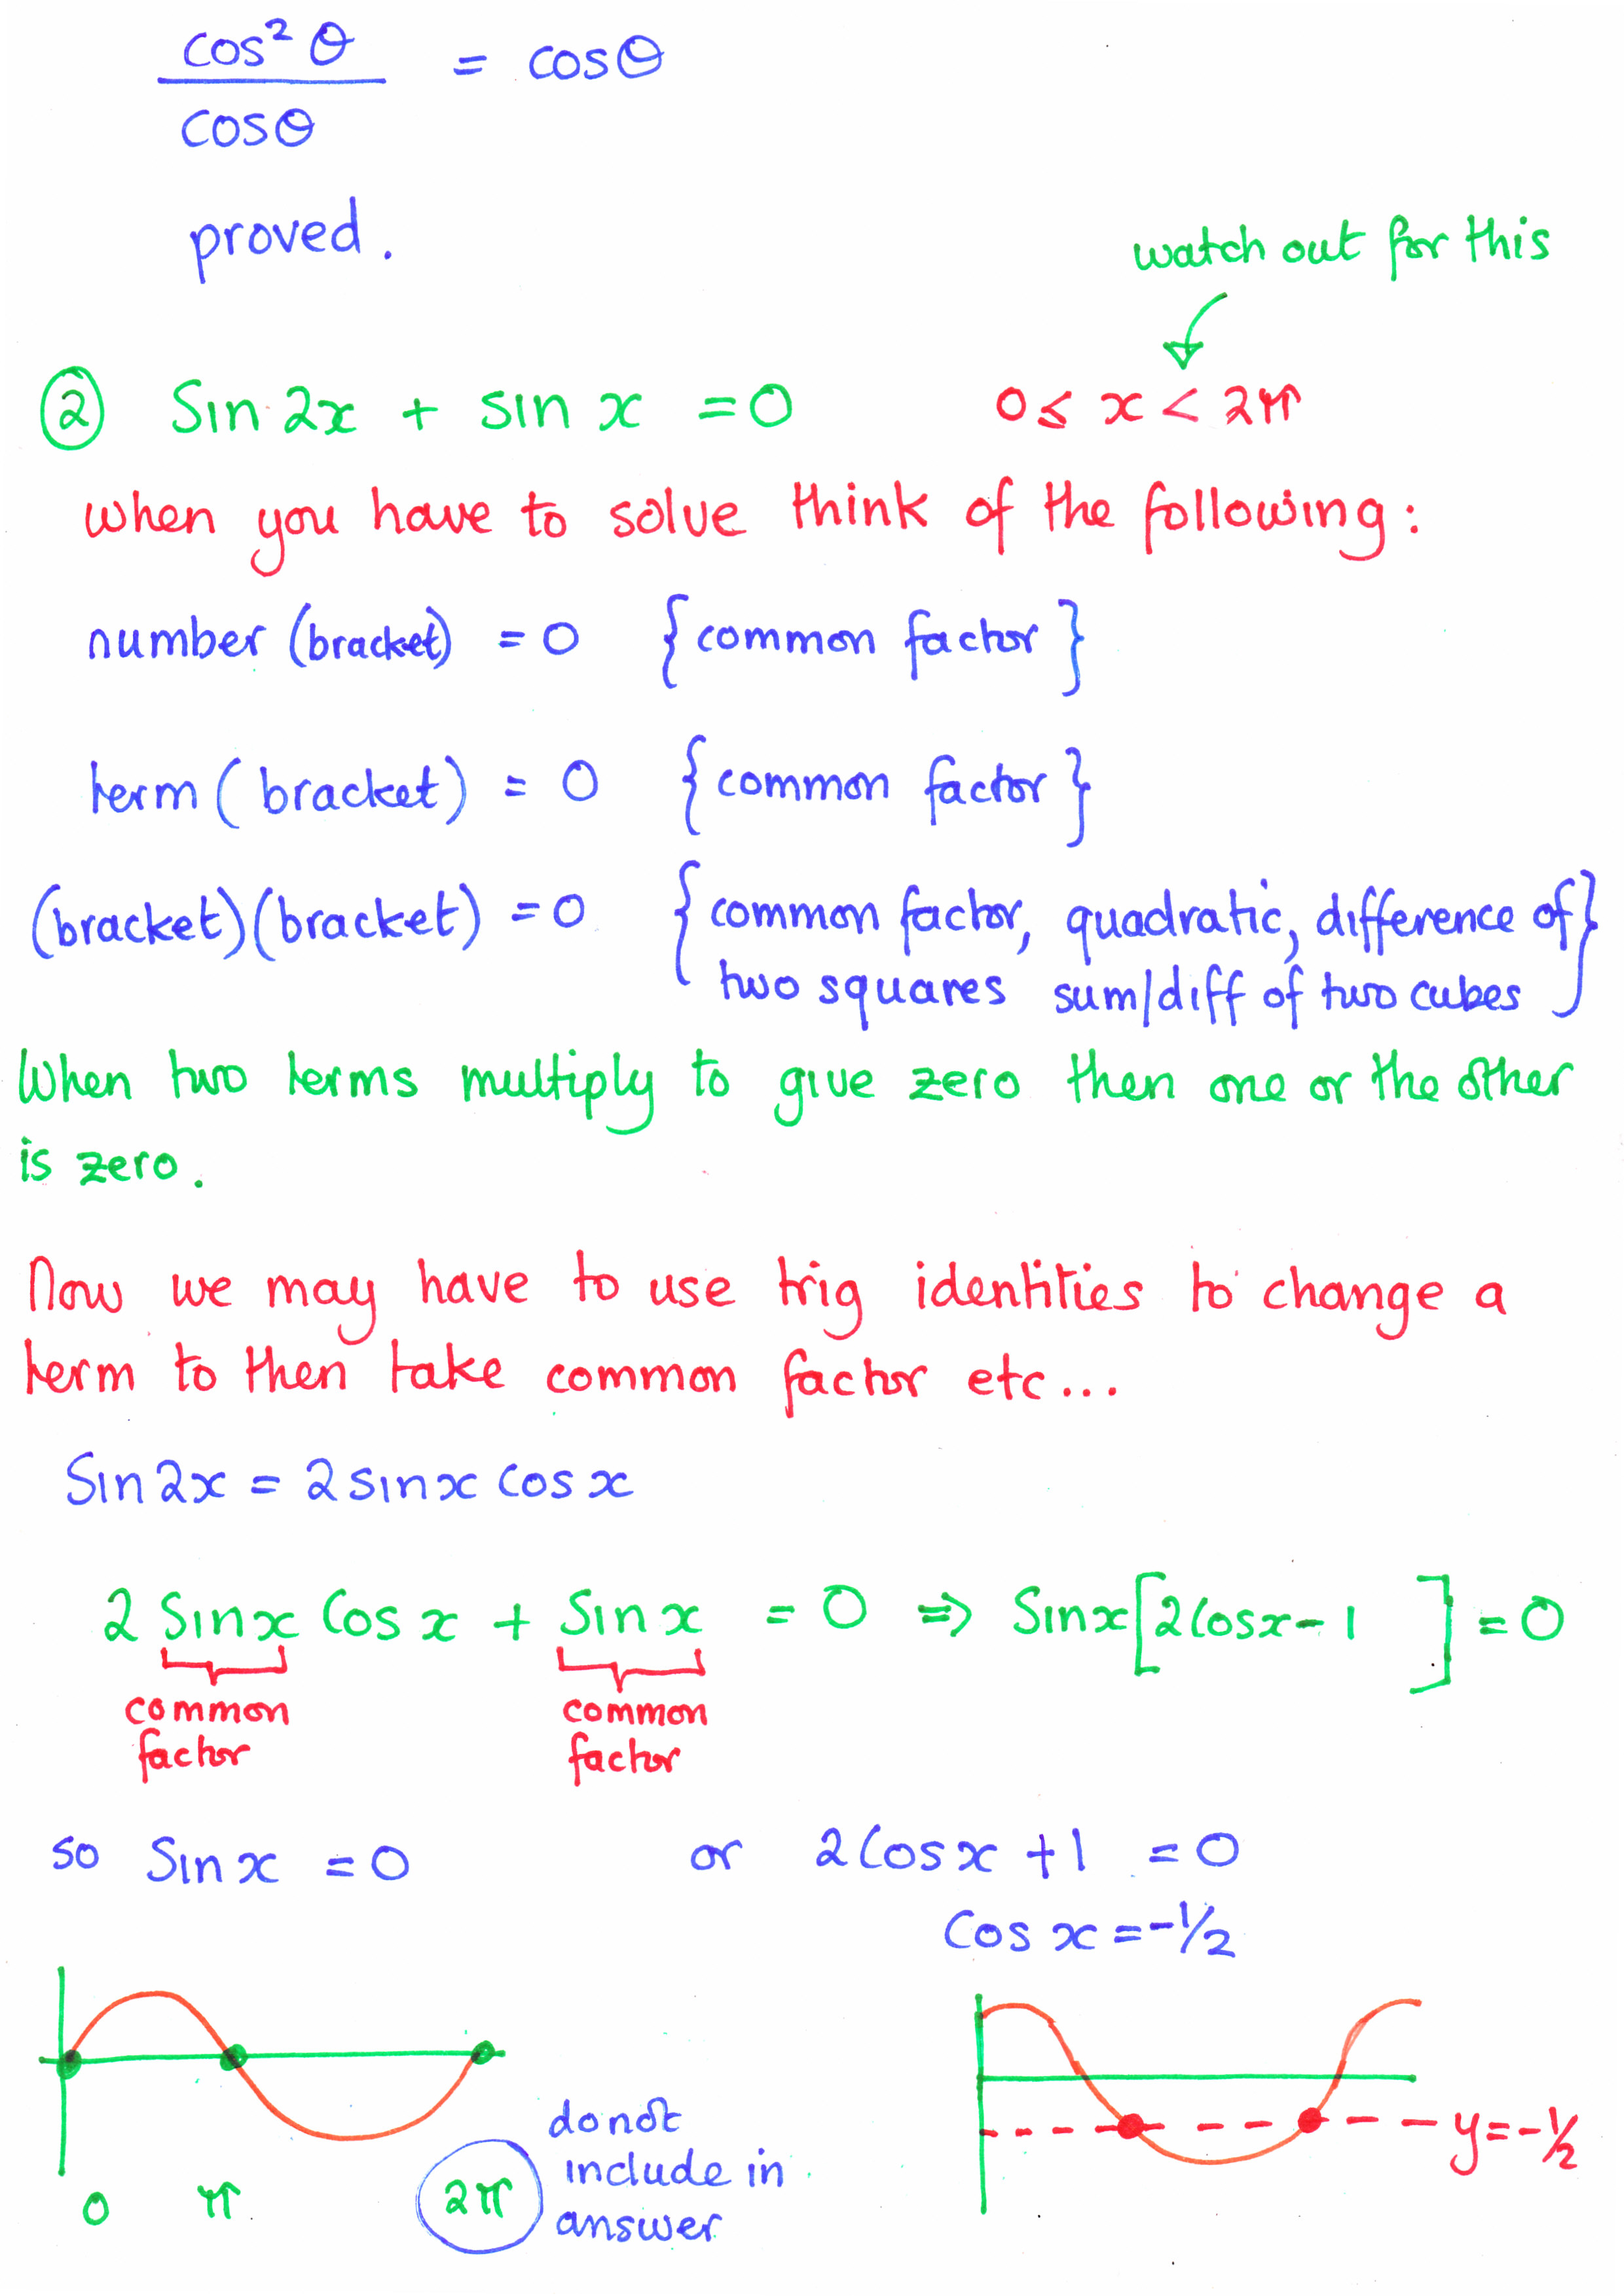 cos² θ
cosθ
= cosθ
proved.
watch out for this
② Sin 2x + sin x = 0 0 ≤ x < 2π
when you have to solve think of the following:
number (bracket) = 0 {common factor}
term (bracket) = 0 {common factor}
(bracket)(bracket) = 0 {common factor, quadratic, difference of
two squares sum/diff of two cubes}
When two terms multiply to give zero then one or the other
is zero.
Now we may have to use trig identities to change a
term to then take common factor etc...
Sin 2x = 2 sin x cos x
2 Sin x Cos x + Sin x = 0 ⇒ Sin x [2 Cos x - 1 ] = 0
common common
factor factor
so Sin x = 0 or 2 Cos x + 1 = 0
Cos x = -1/2
y = -1/2
do not
include in
answer
0 π 2π